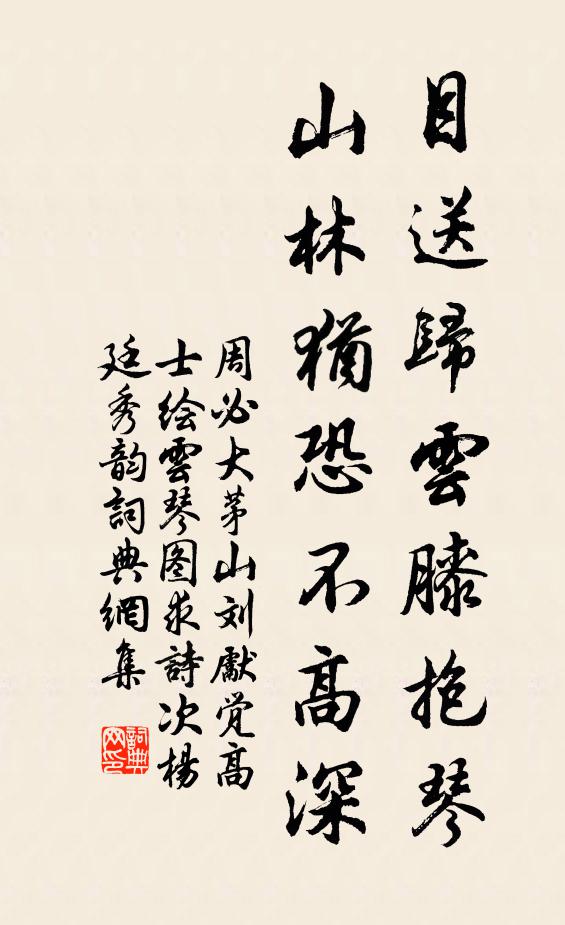 目送歸雲膝抱琴
山林猶恐不高深
周必大茅山刘獻覚高
士绘雲琴图求詩次楊
廷秀韵詞典網集
詞典
网印